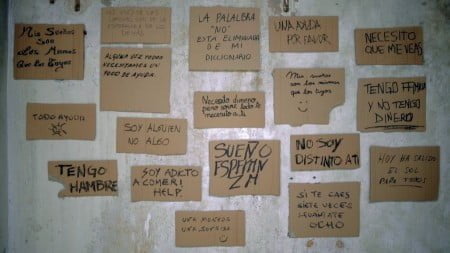 Mis Sueños
Son
Los Mismos
Que los Tuyos
ALGUNA VEZ TODOS
NECESITAMOS UN
POCO DE AYUDA
LA PALABRA
"NO"
ESTA ELIMINADA
DE MI
DICCIONARIO
UNA AYUDA
POR FAVOR
NECESITO
QUE ME VEAS
Necesito dinero,
pero sobre todo te
necesito a ti
Mis sueños
son los mismos
que los tuyos
TENGO FAMILIA
Y NO TENGO
DINERO
TODO AYUDA
SOY ALGUIEN
NO ALGO
TENGO
HAMBRE
SOY ADICTO
A COMER!
HELP.
SUEÑO
NO SOY
DISTINTO A TI
HOY HA SALIDO
EL SOL
PARA TODOS
UNA MONEDA
UNA SONRISA
SI TE CAES
SIETE VECES
LEVANTATE
OCHO